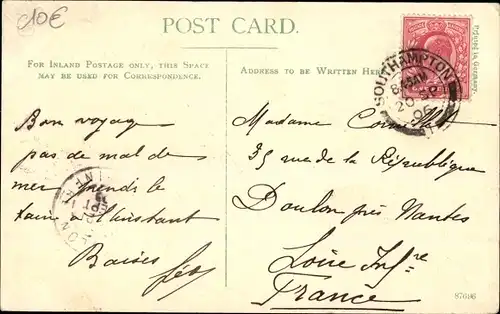 10€
POST CARD.
FOR INLAND POSTAGE ONLY, THIS SPACE
MAY BE USED FOR CORRESPONDENCE.
ADDRESS TO BE WRITTEN HERE
Printed in Germany.
SOUTHAMPTON
8.45AM
20
06
Bon voyage
pas de mal de
mer prends le
train à l'instant
Baisers
Madame
35 rue de la République
Doulon près Nantes
Loire Infre
France
87606